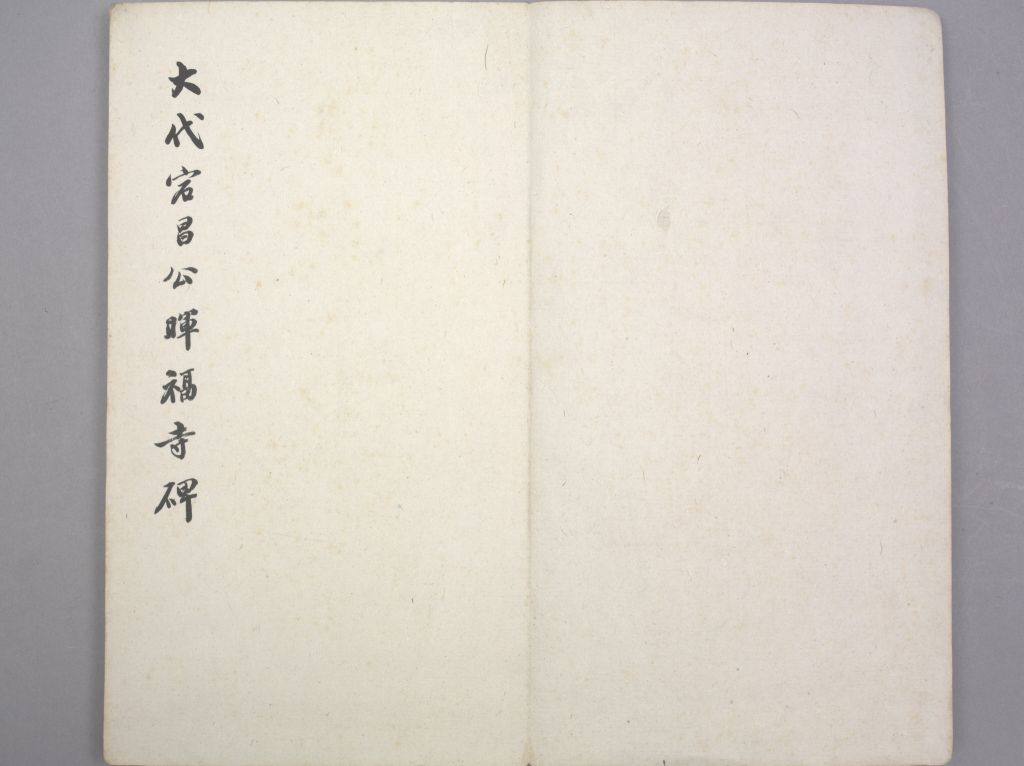 大代宕昌公暉福寺碑